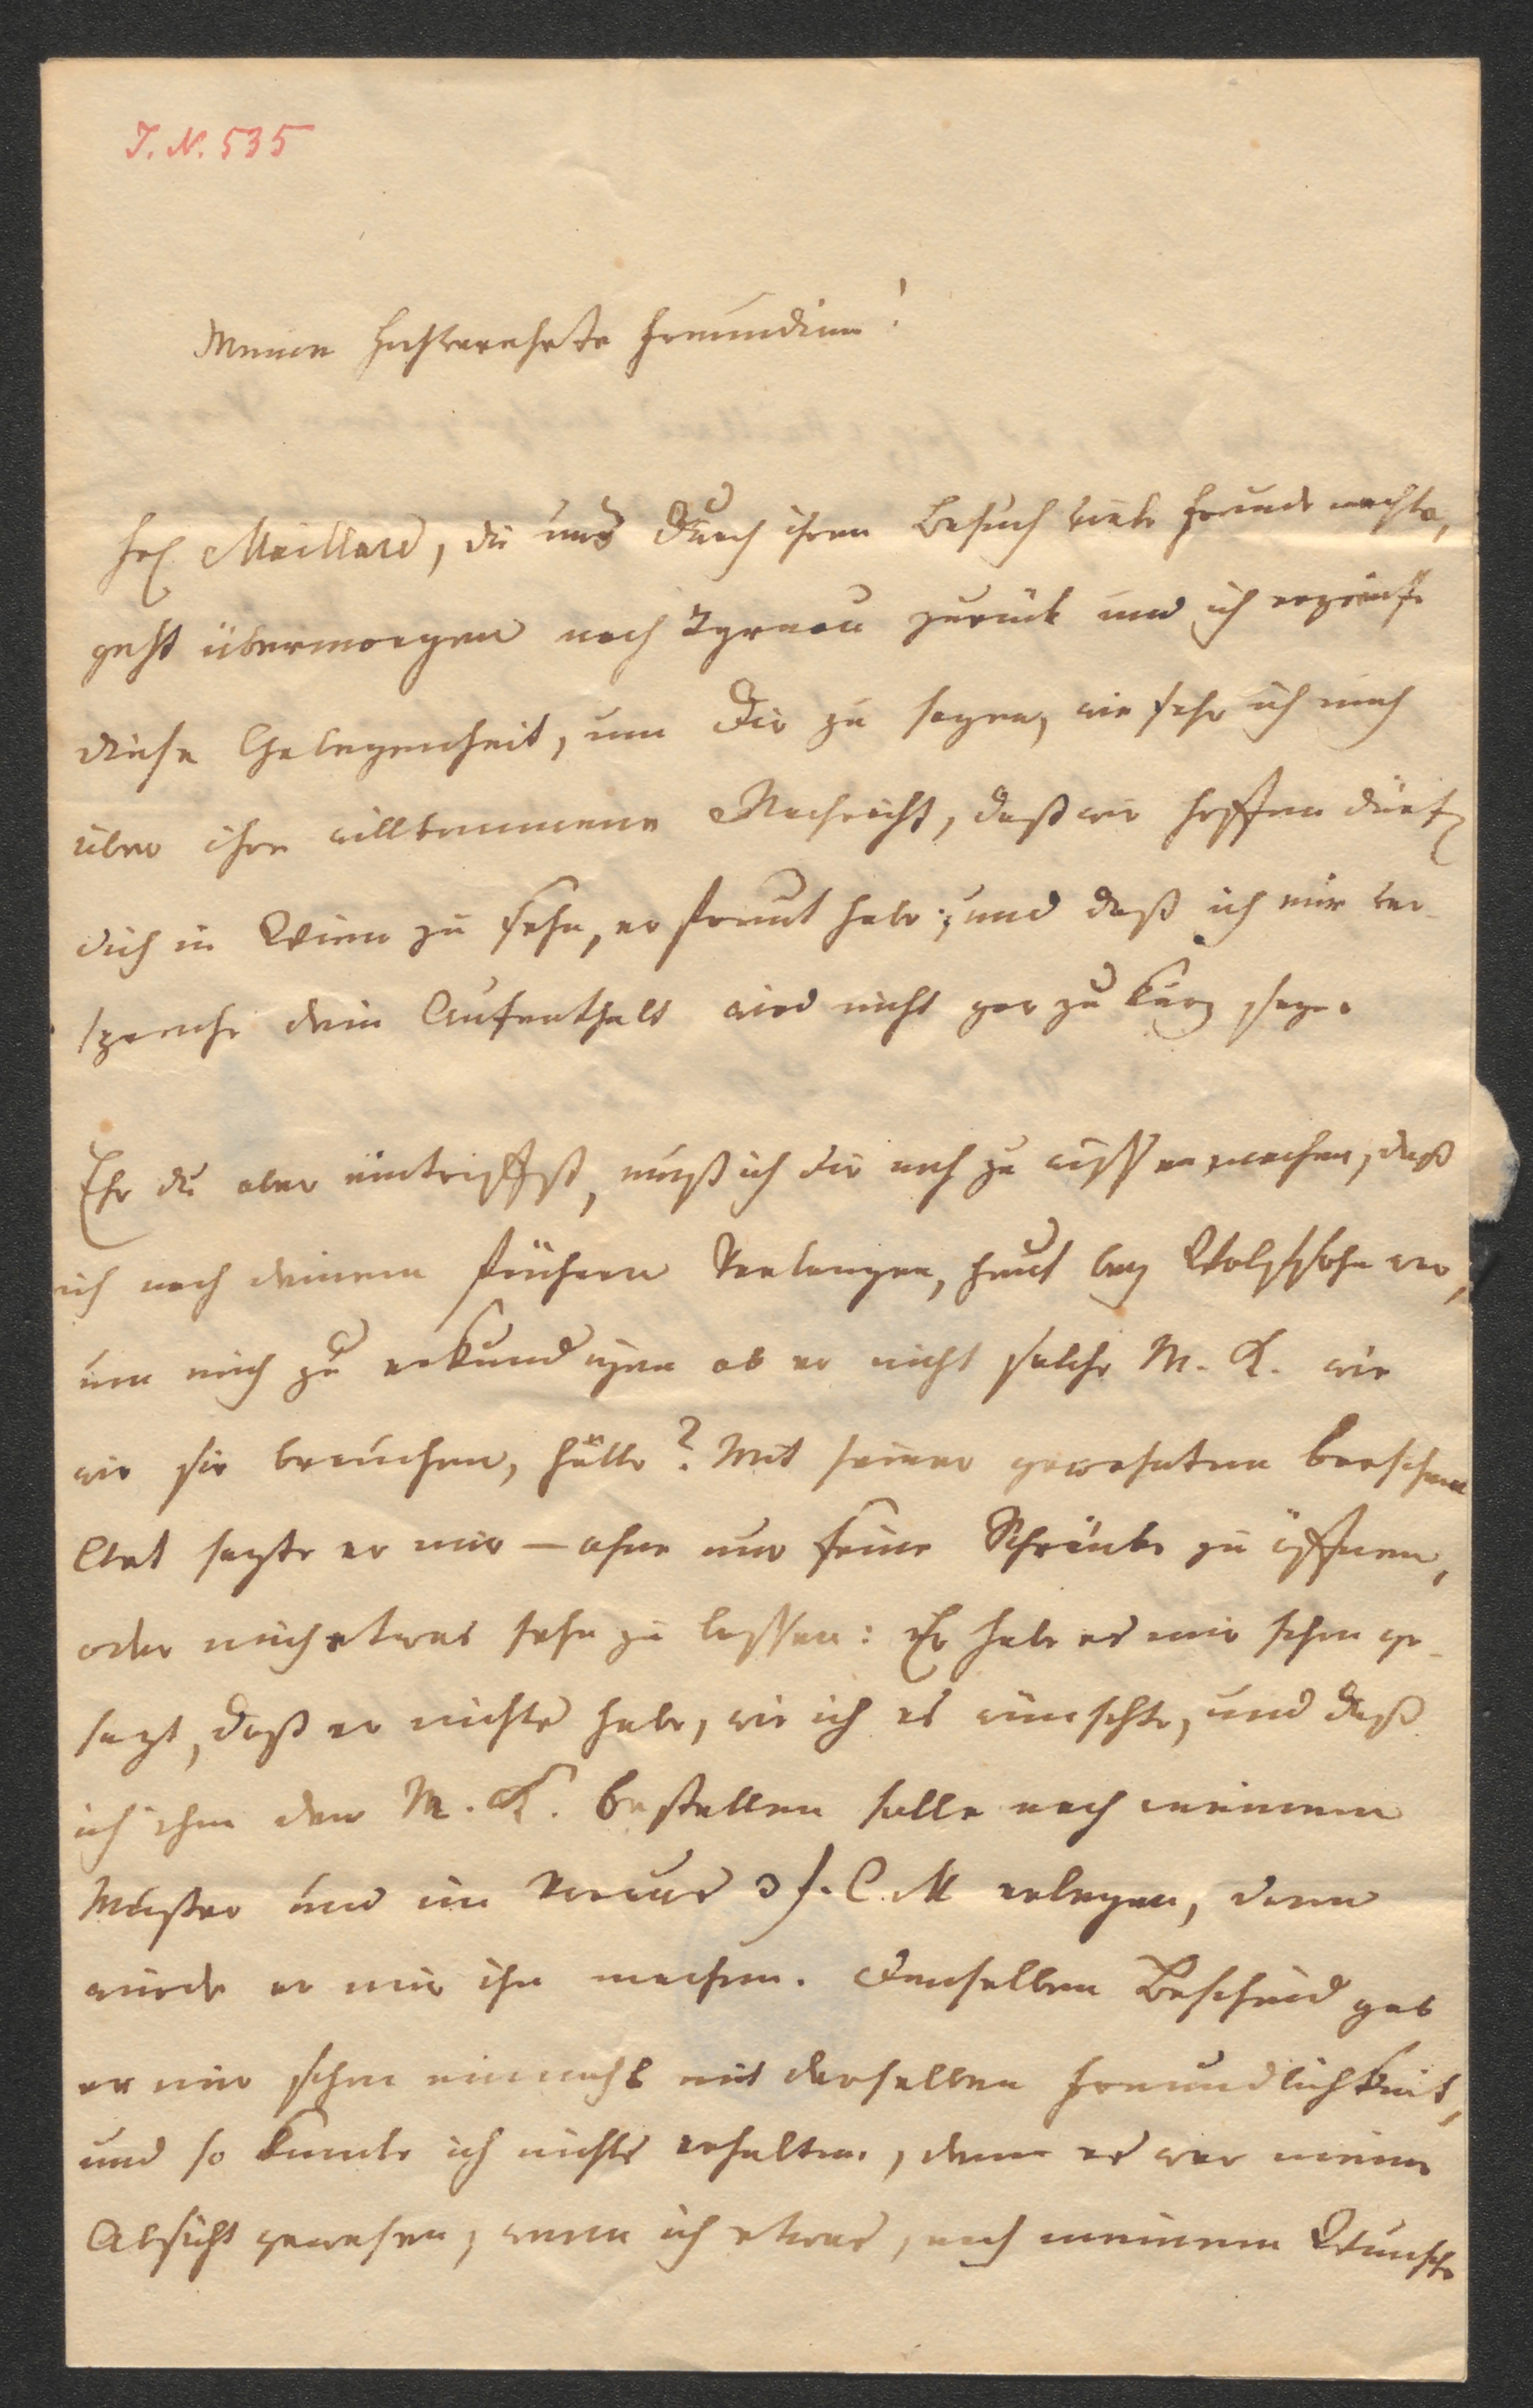 J. N. 535
Meine hochverehrte Freundinn!
Frl Maillard, die uns durch ihren Besuch viele Freude machte,
geht übermorgen nach Tyrnau zurück und ich ergreife
diese Gelegenheit, um Dir zu sagen, wie sehr ich mich
über ihre willkommene Nachricht, daß wir hoffen dürfen
dich in Wien zu sehn, erfreut habe; und daß ich mir ver-
spreche dein Aufenthalt wird nicht gar zu kurz seyn.
Ehe du aber eintriffst, muß ich dir noch zu wissen machen, daß
ich nach deinem frühern Verlangen, heut bey Wolfssohn war,
um mich zu erkundigen ob er nicht solche M. K. wie
wir sie brauchen, hätte? Mit seiner gewohnten
Art sagte er mir – ohne nur seine Schränke zu öffnen,
oder mich etwas sehn zu lassen: Er habe es mir schon ge-
sagt, daß er nichts habe, wie ich es wünschte, und daß
ich ihm den M. K. bestellen solle nach meinem
Muster und im Voraus 3 f. C. M erlegen, dann
würde er mir ihn machen. Denselben Bescheid gab
er mir schon einmahl mit derselben Freundlichkeit,
und so konnte ich nichts erhalten, denn es war meine
Absicht gewesen, wenn ich etwas, nach meinem Wunsche